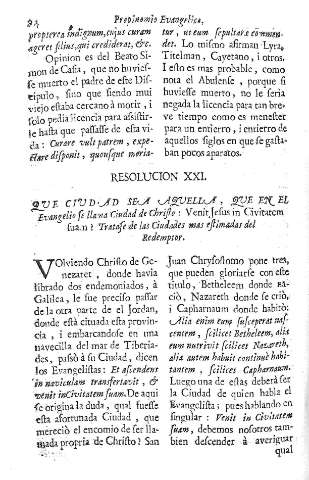 82 Propinomio Evangelico,
propterea indignum, cujus curam
ageret filius, qui crediderat, &c.
Opinion es del Beato Si-
mon de Casia, que no huvies-
se muerto el padre de este Dis-
cipulo, sino que siendo mui
viejo estaba cercano à morir, i
solo pedia licencia para assistir-
le hasta que passasse de esta vi-
da: Curare vult patrem, expe-
ctare disponit, quousque moria-
tur, ut eum sepulturæ comman-
det. Lo mismo afirman Lyra,
Titelman, Cayetano, i otros.
I esto es mas probable, como
nota el Abulense, porque si
huviesse muerto, no le seria
negada la licencia para tan bre-
ve tiempo como es menester
para un entierro, i entierro de
aquellos siglos en que se gasta-
ban pocos aparatos.
RESOLUCION XXI.
QUE CIUDAD SEA AQUELLA, QUE EN EL
Evangelio se llama Ciudad de Christo: Venit Jesus in Civitatem
suam? Tratase de las Ciudades mas estimadas del
Redemptor.
Volviendo Christo de Ge-
nezaret, donde havia
librado dos endemoniados, à
Galilea, le fue preciso passar
de la otra parte de el Jordan,
donde està cituada esta provin-
cia, i embarcandose en una
navecilla del mar de Tiberia-
des, passò à su Ciudad, dicen
los Evangelistas: Et ascendens
in naviculam transfertavit, &
venit in Civitatem suam. De aqui
se origina la duda, qual fuesse
esta afortunada Ciudad, que
mereciò el encomio de ser lla-
mada propria de Christo? San
Juan Chrysostomo pone tres,
que pueden gloriarse con este
titulo, Bethleem donde na-
ciò, Nazareth donde se criò,
i Capharnaum donde habitò:
Alia enim eum susceperat nas-
centem, scilicet Bethleem, alia
eum nutrivit scilicet Nazareth,
alia autem habuit continuè habi-
tantem, scilicet Capharnaum.
Luego una de estas deberà ser
la Ciudad de quien habla el
Evangelista; pues hablando en
singular: Venit in Civitatem
suam, debemos nosotros tam-
bien descender à averiguar
qual